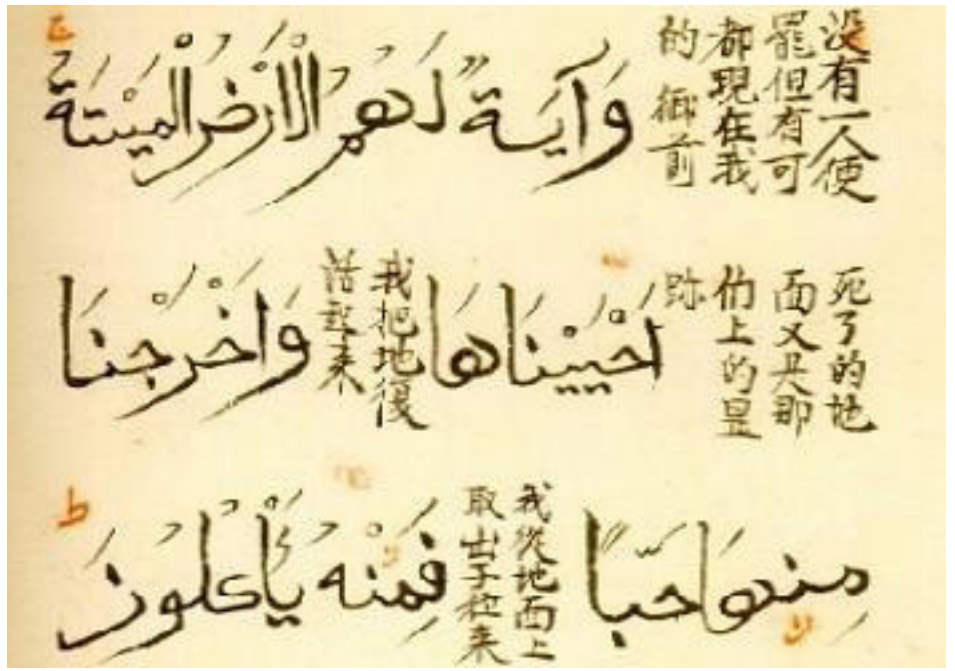 没有一人使
罷但有可
都現在我
的御前
وَآيَةٌ لَهُمُ الْأَرْضُ الْمَيْتَةُ
死了的地
面又是那
上的
跡
اَحْيَيْنَاهَا
我把地復
活起来
وَاَخْرَجْنَا
مِنْهَا حَبًّا
我從地面上
取出子粒来
فَمِنْهُ يَأْكُلُونَ